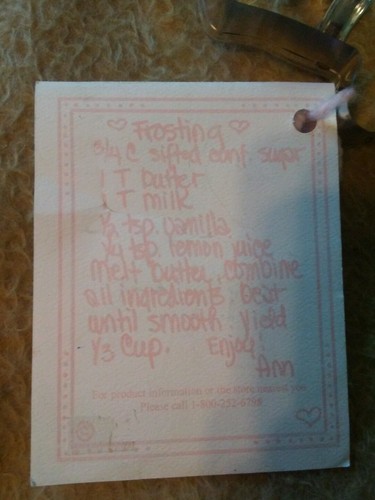 Frosting
3/4 C sifted conf. sugar
1 T butter
1 T milk
1/2 tsp. vanilla
1/4 tsp. lemon juice
melt butter, combine
all ingredients. Beat
until smooth. Yield
1/3 Cup. Enjoy!
Ann
For product information or the store nearest you
Please call 1-800-252-6755